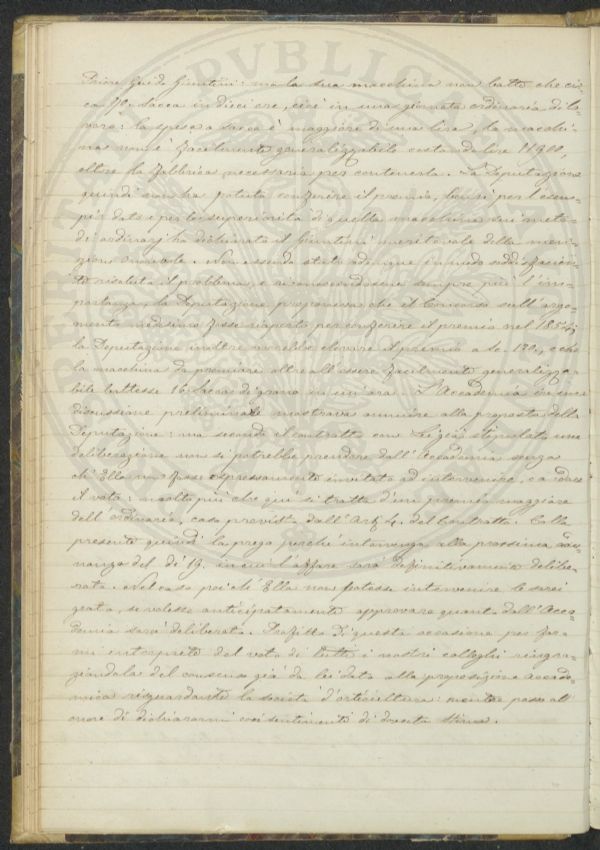 Priore Guido Giuntini: ma la sua macchina non batte che cir-
ca 70 sacca in dieci ore, cioè in una giornata ordinaria di la-
voro: la spesa a sacca è maggiore di una lira, la macchi-
na non è facilmente generalizzabile costando lire 11900,
oltre la fabbrica necessaria per contenerla. La Deputazione
quindi non ha potuto conferire il premio, bensì per l'esem-
pio dato e per la superiorità di quella macchina sui meto-
di ordinarj ha dichiarato il Giuntini meritevole della men-
zione onorevole. Non essendo stato adunque in modo soddisfacien-
te risoluto il problema, e riconoscendosene sempre più l'im-
portanza, la Deputazione proponeva che il Concorso sull'argo-
mento medesimo fosse riaperto per conferire il premio nel 1854;
la Deputazione inoltre vorrebbe elevare il premio a 170, e che
la macchina da premiare oltre all'essere facilmente generalizza-
bile battesse 16 sacca di grano in un'ora. L'Accademia in una
discussione preliminare mostrava annuire alla proposta della
Deputazione: ma secondo il contratto con Lei già stipulato una
deliberazione non si potrebbe prendere dall'Accademia senza
ch'Ella non fosse espressamente invitata ad intervenire, e a dare
il voto: molto più che qui si tratta d'un premio maggiore
dell'ordinario, caso previsto dall'Art. 4. del Contratto. Colla
presente quindi la prego perchè intervenga alla prossima adu-
nanza del dì 19. in cui l'affare sarà definitivamente delibe-
rato. Nel caso poi ch'Ella non potesse intervenire le sarei
grato, se volesse anticipatamente approvare quanto dall'Acca-
demia sarà deliberato. Profitto di questa occasione per far-
mi interprete del voto di tutti i nostri colleghi ringra-
ziandola del consenso già da lei dato alla proposizione accade-
mica risguardante la società d'orticultura: mentre passo all'
onore di dichiararmi coi sentimenti di dovuta stima.